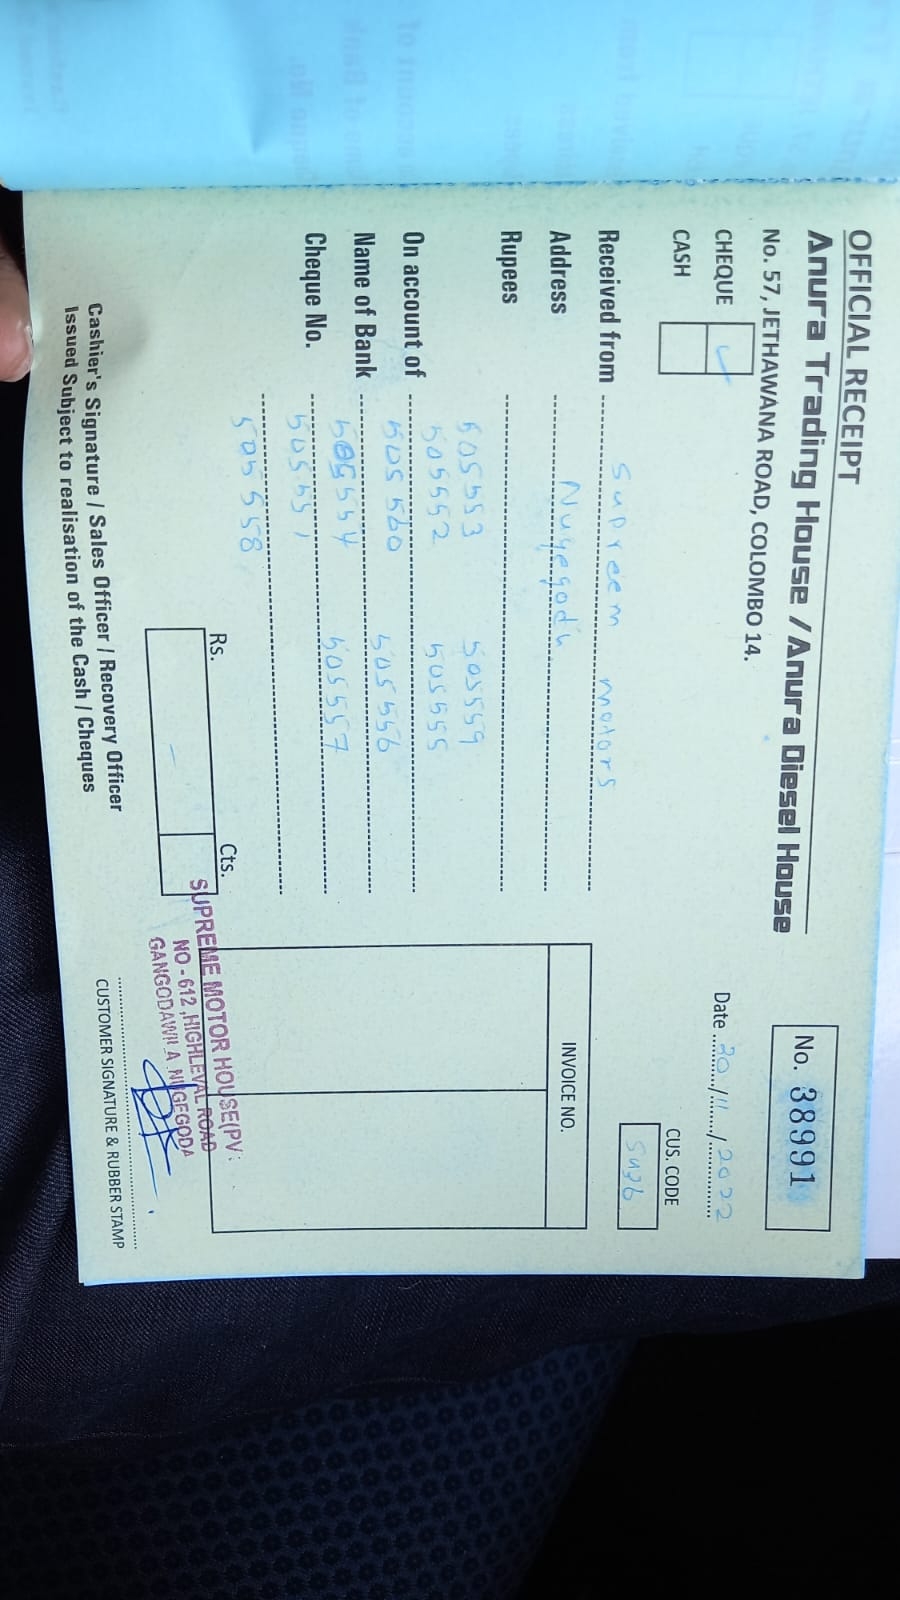 OFFICIAL RECEIPT
Anura Trading House / Anura Diesel House
No. 57, JETHAWANA ROAD, COLOMBO 14.
No. 38991
CHEQUE ✓
CASH
Date 30/11/2022
CUS. CODE
Received from supreem motors
Address Nugegoda
Rupees
INVOICE NO.
505553 505559
505552 505555
On account of 505560 505556
Name of Bank 505554 505557
Cheque No. 505551
505558
Rs. Cts.
SUPREME MOTOR HOUSE(PV:
NO - 612, HIGHLEVAL ROAD
GANGODAWILA NUGEGODA
Cashier's Signature / Sales Officer / Recovery Officer
Issued Subject to realisation of the Cash / Cheques
CUSTOMER SIGNATURE & RUBBER STAMP